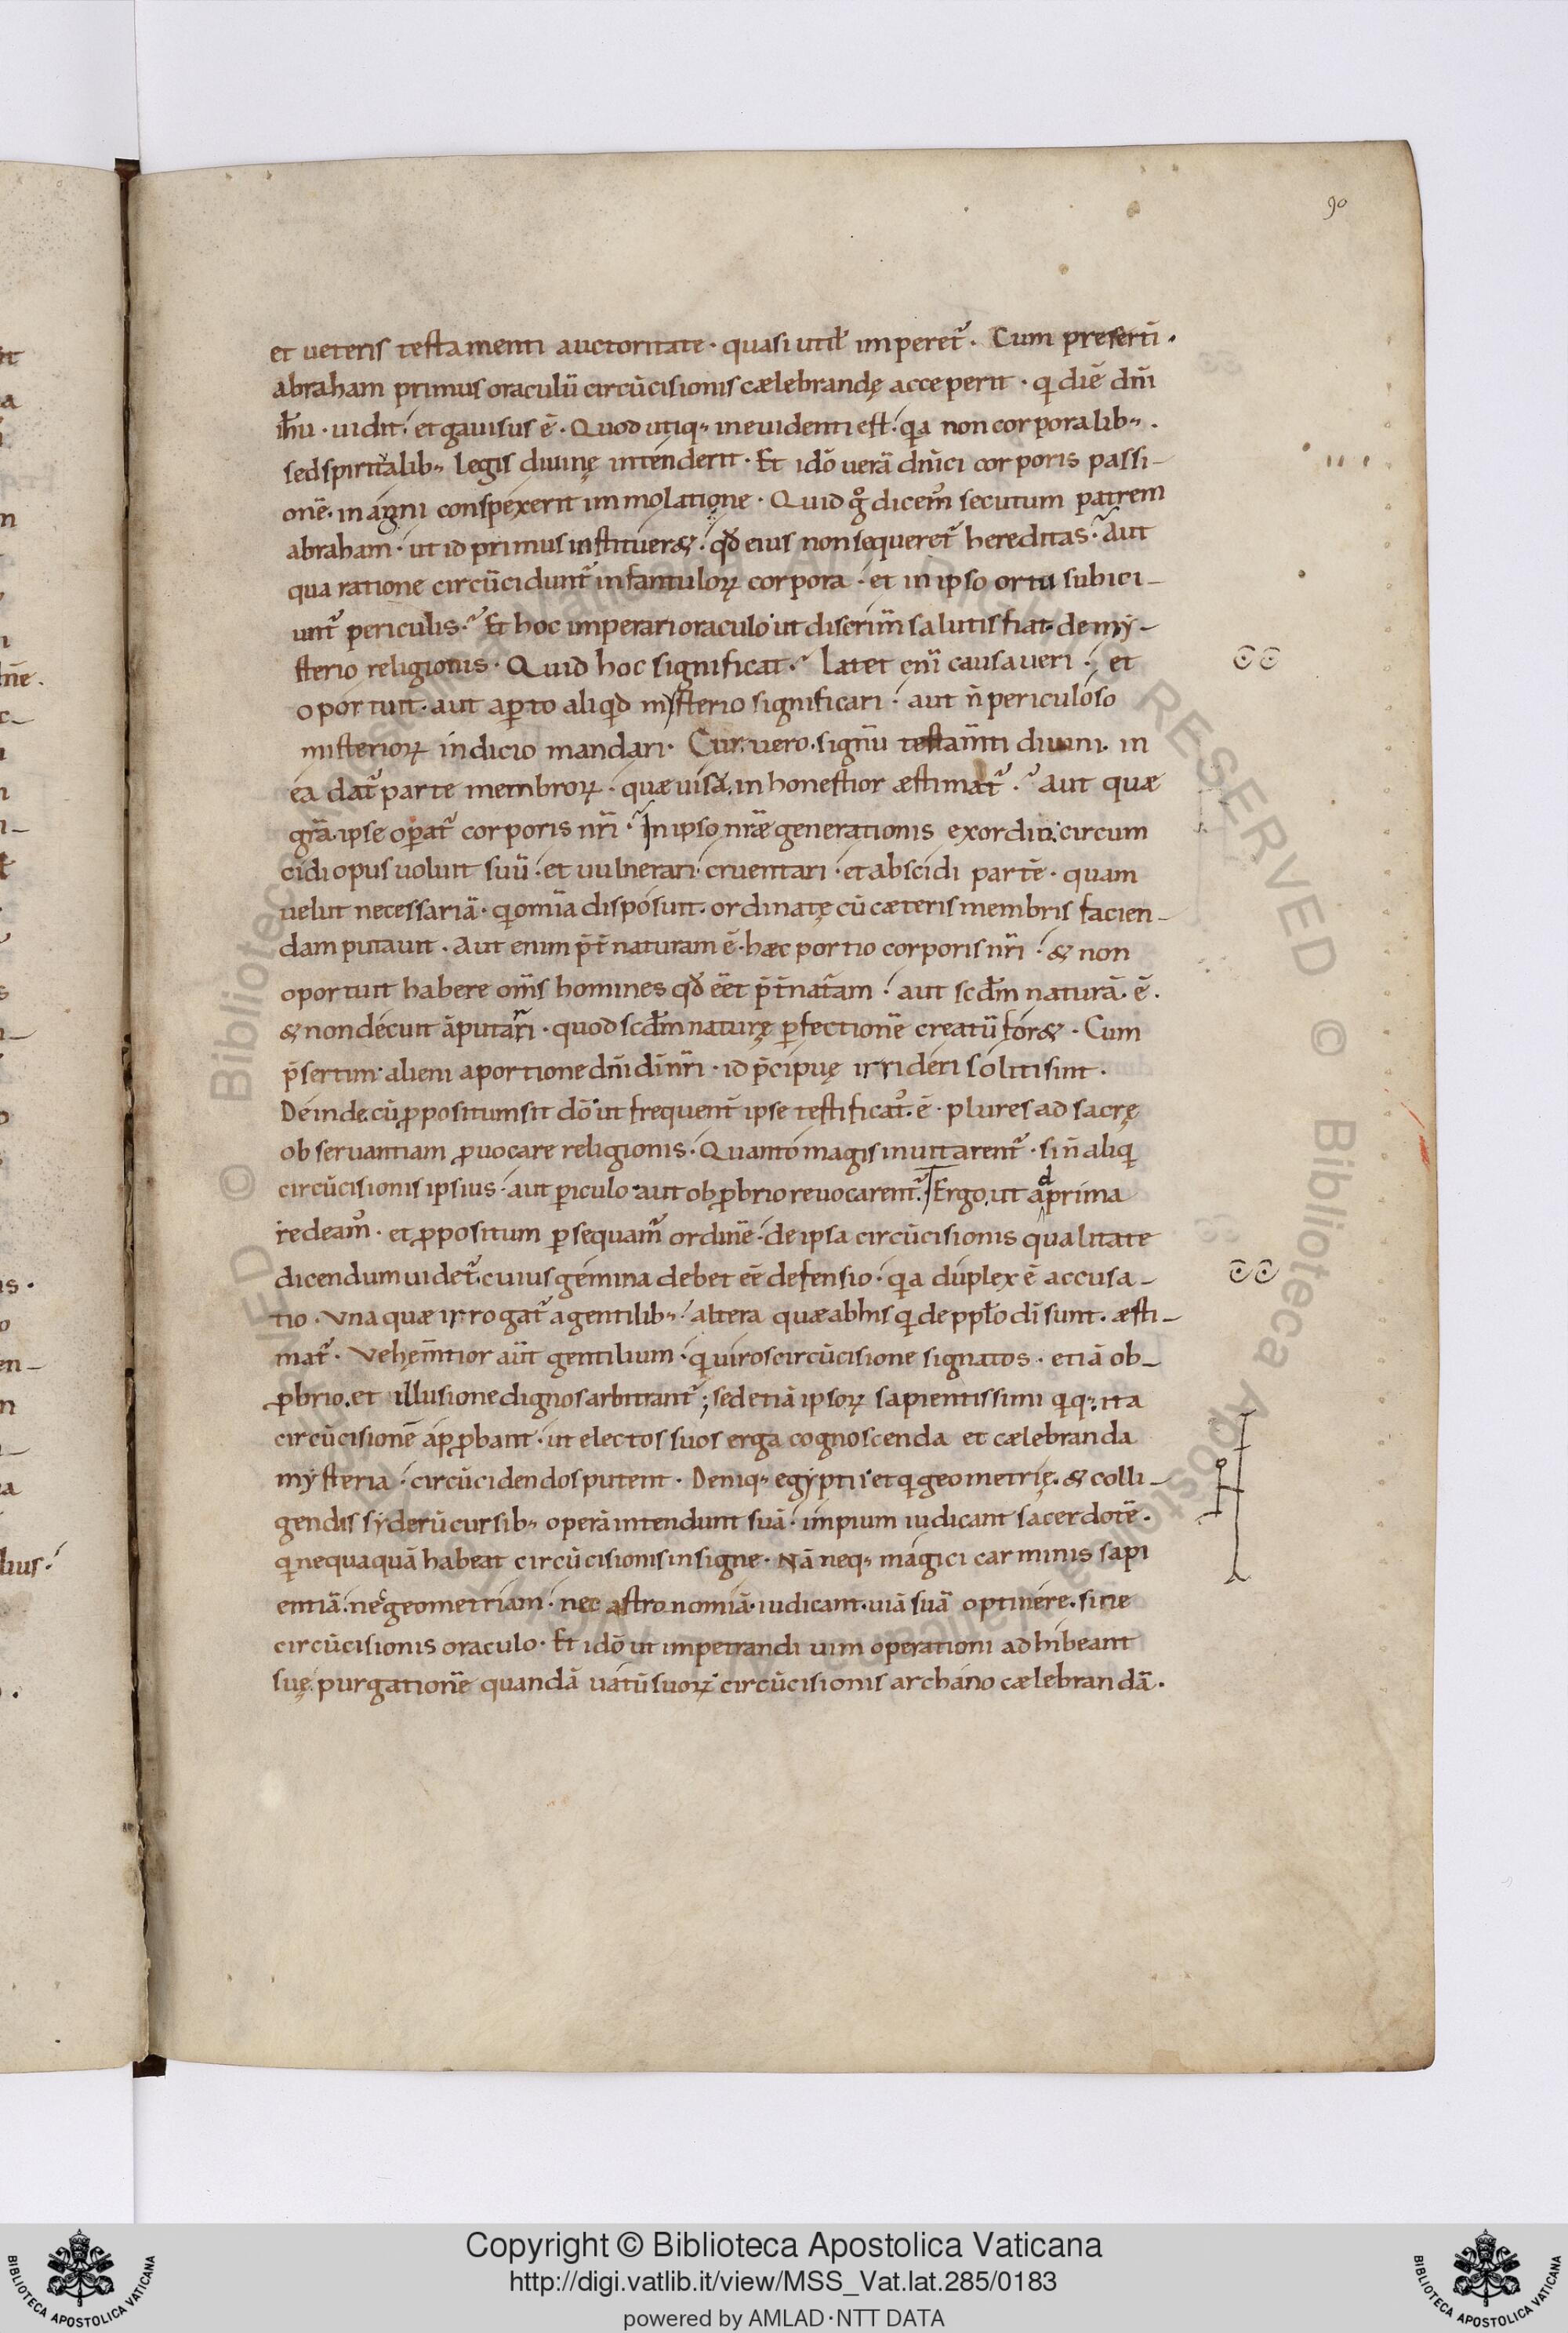 90
et ueteris testamenti auctoritate · quasi utił imperet᷑ . Cum presertī .
abraham primus oraculū circūcisionis cælebrandę acceperit · q diē dn̄i
ih̄u · uidit · et gauisus ē · Quod utiq in euidenti est · qa non corporalib .
sed spiritalib legis diuinę intenderit · Et idō uerā dn̄ici corporis passi-
onē · in agni conspexerit immolatione · Quid g̊ dicem᷒ secutum patrem
abraham · ut id primus institueret · qd̄ eius non sequeret᷑ hereditas · Aut
qua ratione circūcidunt᷑ infantuloꝝ corpora · et in ipso ortu subici-
unt᷑ periculis · Et hoc imperari oraculo ut discrim̄ salutis fiat · de mẏ-
sterio religionis · Quid hoc significat · Latet eni᷑ causa ueri · et
oportuit · aut aꝑto aliqd mẏsterio significari · aut n̄ periculoso
misterioꝝ indicio mandari · Cur uero · signū testam̄ti diuini · in
ea dat᷑ parte membroꝝ · quæ uisa · inhonestior æstimat᷑ · Aut quæ
gr̄a · ipse oꝑat᷑ corporis nr̄i · In ipso nr̄æ generationis exordio · circum
cidi opus uoluit suū · et uulnerari · cruentari · et abscidi partē · quam
uelut necessariā · q om̄ia disposuit · ordinatę cū cæteris membris facien-
dam putauit · Aut enim p̄t̄ naturam ē · hæc portio corporis nr̄i · & non
oportuit habere om̄s homines qd̄ eēt p̄t̄ nat᷑am · aut scd̄m naturā · ē ·
& non decuit āputari · quod scd̄m naturę ꝑfectionē creatū foret · Cum
p̄sertim alieni a portione dn̄i dī nr̄i · id p̄cipuę irrideri soliti sint ·
Deinde · cū ꝓpositum sit dō ut frequent̄ ipse testificat᷒ · ē · plures ad sacrę
obseruantiam ꝓuocare religionis · Quanto magis inuitarent᷑ · si n̄ aliq
circūcisionis ipsius · aut ꝑiculo aut obꝓbrio reuocarent᷑ · Ergo · ut ad prima
redeam᷒ · et ꝓpositum ꝑsequam᷑ ordinē · de ipsa circūcisionis qualitate
dicendum uidet᷑ · cuius gemina debet eē defensio · qa duplex ē accusa-
tio · Vna quæ irrogat᷑ a gentilib · altera quæ ab his q de pplo dī sunt · æsti-
mat᷑ · Vehem̄tior aūt gentilium · q uiros circūcisione signatos · etiā ob-
ꝓbrio · et illusione dignos arbitrant᷑ ; sed etiā ipsoꝝ sapientissimi qq · ita
circūcisionē apꝓbant · ut electos suos erga cognoscenda et cælebranda
mẏsteria · circūcidendos putent · Deniq egẏptii et q geometrię · & colli-
gendis sẏderū cursib operā intendunt suā · impium iudicant sacerdotē ·
q nequaquā habeat circūcisionis insigne · Nā neq magici carminis sapi
entiā · nec geometriam · nec astronomiā · iudicant · uiā suā optinere · sine
circūcisionis oraculo · Et idō ut impetrandi uim operationi adhibeant
suę · purgationē quandā uatū suoꝝ circūcisionis archano cælebrandā ·
Copyright © Biblioteca Apostolica Vaticana
http://digi.vatlib.it/view/MSS_Vat.lat.285/0183
powered by AMLAD·NTT DATA